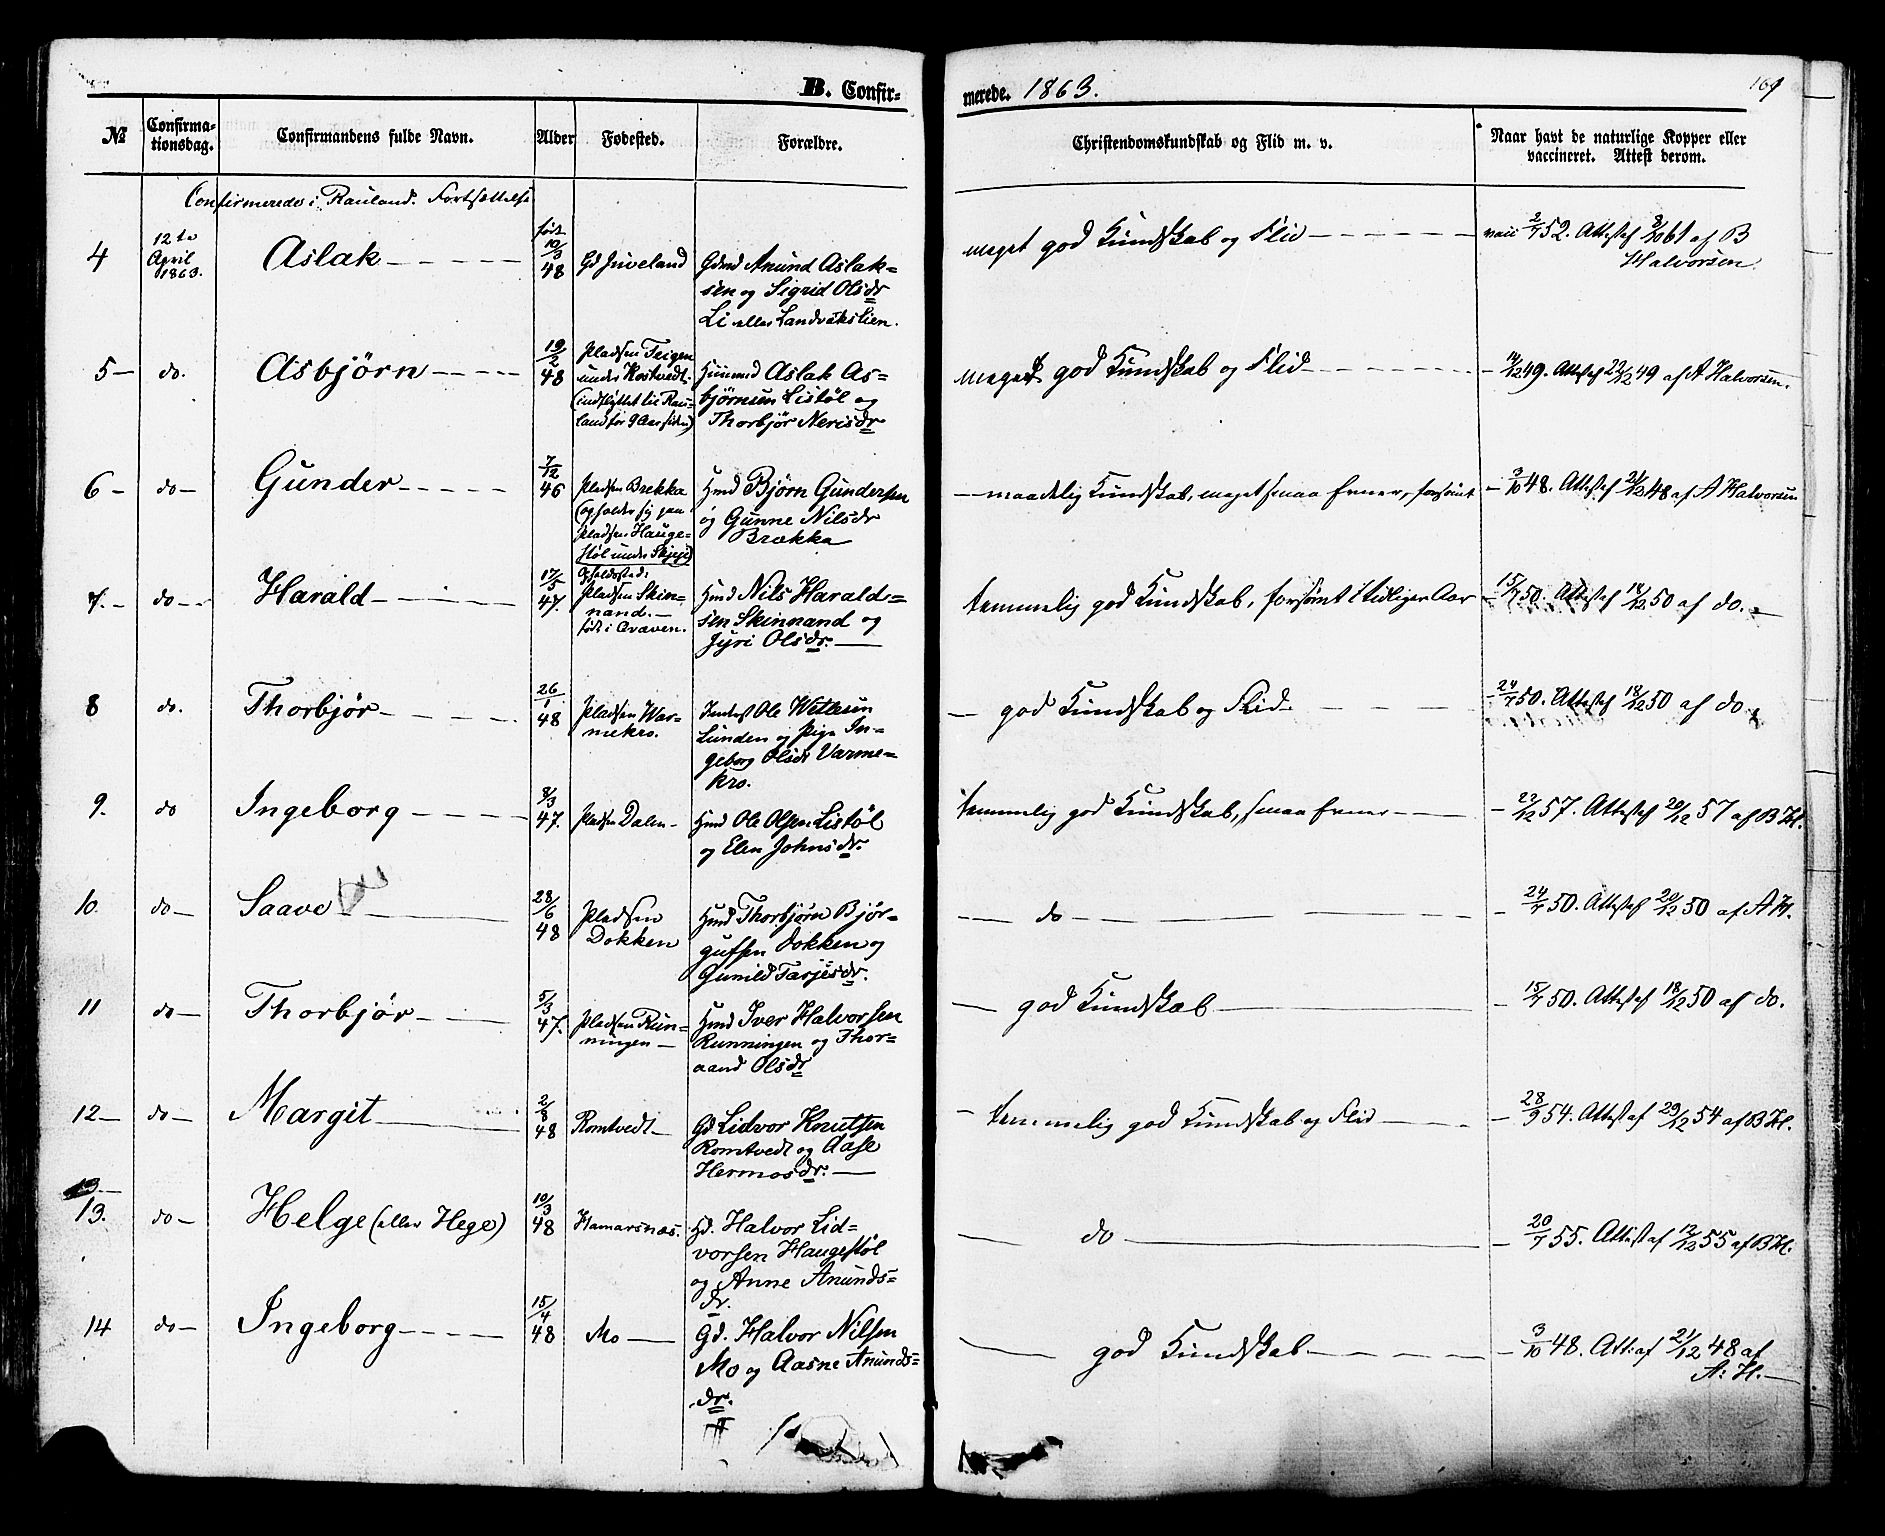 B. Confir-
merede. 1863.
169
№
Confirma-
tionsdag.
Confirmandens fulde Navn.
Alder
Fødested.
Forældre.
Christendomskundskab og Flid m. v.
Naar havt de naturlige Kopper eller
vaccineret. Attest derom.
Confirmerede i Rauland. Fortsættelse
4
12te
April
1863.
Aslak
født
10/3
48
Gd Juveland
Gdmd Anund Aslak=
sen og Sigrid Olsdr
Li eller Landvikslien.
meget god Kundskab og Flid
vacc 2/7 52. Attest af 8/10 61 af B
Halvorsen
5 - do.
Asbjörn
19/2
48
Pladsen Teigen
under Kostvedt.
(indflyttet til Rau=
land for 9 Aar siden)
Huusmd Aslak As=
björnsen Listöl og
Thorbjör Nerisdr
meget god Kundskab og Flid
14/12 49. Attest af 22/12 49 af A Halvorsen.
6 - do -
Gunder
7/12
46
Pladsen Brekka
(opholder sig paa
Pladsen Hauge=
stöl under
Hmd Björn Gundersen
og Gunne Nilsdr
Brækka
maadelig Kundskab, meget smaa Evner, forsömt
3/10 48. Attest af 21/12 48 af A Halvorsen
7. - do -
Harald
17/5
47.
Opholdssted:
Pladsen Skin=
nand. -
født i Graven.
Hmd Nils Harald=
sen Skinnand og
Jyri Olsdr.
temmelig god Kundskab, forsömt i tidligere Aar
15/7 50. Attest af 18/12 50 af do.
8 do.
Thorbjör
26/1
48
Pladsen Var=
mekro.
Inderst Ole Wetlesen
Lunden og Pige In=
geborg Olsdr Varme=
kro.
god Kundskab og Flid.
24/7 50. Attest af 18/12 50 af do.
9. do
Ingeborg
8/3
47.
Pladsen Dalen
Hmd Ole Olsen Listöl
og Elen Johnsdr.
temmelig god Kundskab, smaa Evner
22/12 57. Attest af 29/12 57 af B H.
10. do -
Saave
28/6
48
Pladsen
Dokken
Hmd Thorbjörn Björ=
gufsen Dokken og
Gunild Tarjesdr.
do
24/7 50. Attest af 20/12 50 af A H.
11 do -
Thorbjör
5/3
47.
Pladsen Run=
ningen
Hmd Iver Halvorsen
Runningen og Thor=
aand Olsdr
god Kundskab
15/7 50. Attest af 18/12 50 af do.
12 - do -
Margit
2/8
48
Romtvedt
Gd Lidvor Knutsen
Romtvedt og Aase
Hermosdr.
temmelig god Kundskab og Flid
28/9 54. Attest af 29/12 54 af B H.
13 -
13. do -
Helge (eller Hege)
10/3
48
Hamarsnæs.
Gd. Halvor Lid=
vorsen Haugestöl
og Anne Anunds=
dr.
do
20/7 55. Attest af 12/12 55 af B H.
14 do -
Ingeborg
15/4
48
Mo
Gd. Halvor Nilsen
Mo og Aasne Anunds=
dr.
god Kundskab
3/10 48. Att: af 21/12 48 af
A: H.